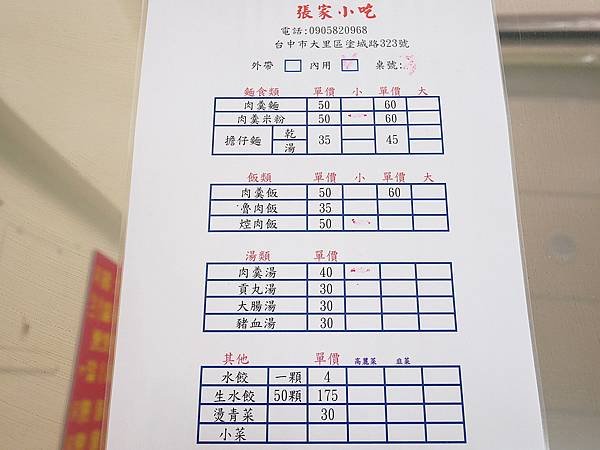 張家小吃
電話:0905820968
台中市大里區塗城路323號
外帶 內用 桌號:
麵食類 單價 小 單價 大
肉羹麵 50 60
肉羹米粉 50 60
擔仔麵 乾 湯 35 45
飯類 單價 小 單價 大
肉羹飯 50 60
魯肉飯 35
焢肉飯 50
湯類 單價
肉羹湯 40
貢丸湯 30
大腸湯 30
豬血湯 30
其他 單價 高麗菜 韭菜
水餃 一顆 4
生水餃 50顆 175
燙青菜 30
小菜